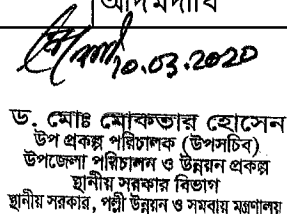 আদমদীঘি
10.03.2020
ড. মোঃ মোকতার হোসেন
উপ প্রকল্প পরিচালক (উপসচিব)
উপজেলা পরিচালন ও উন্নয়ন প্রকল্প
স্থানীয় সরকার বিভাগ
স্থানীয় সরকার, পল্লী উন্নয়ন ও সমবায় মন্ত্রণালয়